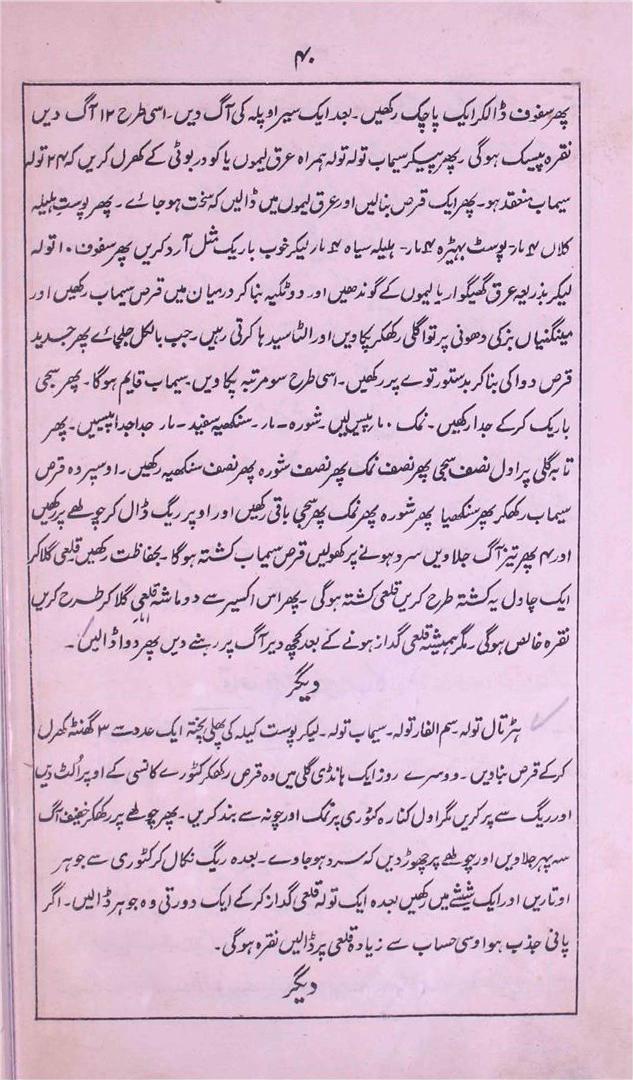 ۴۰
پھر سفوف ڈالکر ایک پاچک رکھیں۔ بعد ایک سیر اوپلہ کی آگ دیں۔ اسی طرح ۱۲ آگ دیں
نقرہ پیسک ہوگی۔ پھر پیسکر سیماب تولہ تولہ ہمراہ عرق لیموں یا کودر بوٹی کے کھرل کریں کہ ۲۴ تولہ
سیماب منعقد ہو۔ پھر ایک قرص بنالیں اور عرق لیموں میں ڈالیں کہ سخت ہوجائے۔ پھر پوست ہلیلہ
کلاں ۴ مار۔ پوست بہیڑہ ۴ مار۔ ہلیلہ سیاہ ۴ مار لیکر خوب باریک مثل آرد کریں پھر سفوف ۱۰ تولہ
لیکر بذریعہ عرق گھیگوار یا لیموں کے گوندھیں اور دو ٹکیہ بنا کر درمیان میں قرص سیماب رکھیں اور
مینگنیاں بز کی دھونی پر توا گلی رکھکر پکاویں اور الٹا سیدہا کرتی رہیں۔ جب بالکل جلجائے پھر جدید
قرص دوا کی بنا کر بدستور توے پر رکھیں۔ اسی طرح سو مرتبہ پکاویں۔ سیماب قایم ہوگا۔ پھر سجی
باریک کرکے جدا رکھیں۔ نمک ۱۰ مار پیس لیں۔ شورہ ۔ مار۔ سنکھیہ سفید ۔ مار جدا جدا پیسیں۔ پھر
تابہ گلی پر اول نصف سجی پھر نصف نمک پھر نصف شورہ پھر نصف سنکھیہ رکھیں۔ اوسپر وہ قرص
سیماب رکھکر پھر سنکھیا پھر شورہ پھر نمک پھر سجی باقی رکھیں اور اوپر ریگ ڈال کر چولھے پر رکھیں
اور ۴ پھر تیز آگ جلاویں سرد ہونے پر کھولیں قرص سیماب کشتہ ہوگا۔ بحفاظت رکھیں قلعی گلا کر
ایک چاول یہ کشتہ طرح کریں قلعی کشتہ ہوگی۔ پھر اس اکسیر سے دو ماشہ قلعی گلا کر طرح کریں
نقرہ خالص ہوگی۔ مگر ہمیشہ قلعی گداز ہونے کے بعد کچھ دیر آگ پر رہنے دیں پھر دوا ڈالیں۔
دیگر
ہڑتال تولہ سم الفار تولہ۔ سیماب تولہ۔ لیکر پوست کیلہ کی پھلی پختہ ایک عدد سے ۳ گھنٹہ کھرل
کرکے قرص بناویں۔ دوسرے روز ایک ہانڈی گلی میں وہ قرص رکھکر کٹورے کانسی کے اوپر اُلٹ دیں
اور ریگ سے پر کریں مگر اول کنارہ کٹوری پر نمک اور چونہ سے بند کریں۔ پھر چولھے پر رکھکر خفیف آگ
سہ پہر جلاویں اور چولھے پر چھوڑ دیں کہ سرد ہوجاوے۔ بعدہ ریگ نکال کر کٹوری سے جوہر
اوتاریں اور ایک شیشے میں رکھیں بعدہ ایک تولہ قلعی گداز کرکے ایک دو رتی وہ جوہر ڈالیں۔ اگر
پانی جذب ہوا وسی حساب سے زیادہ قلعی پر ڈالیں نقرہ ہوگی۔
دیگر